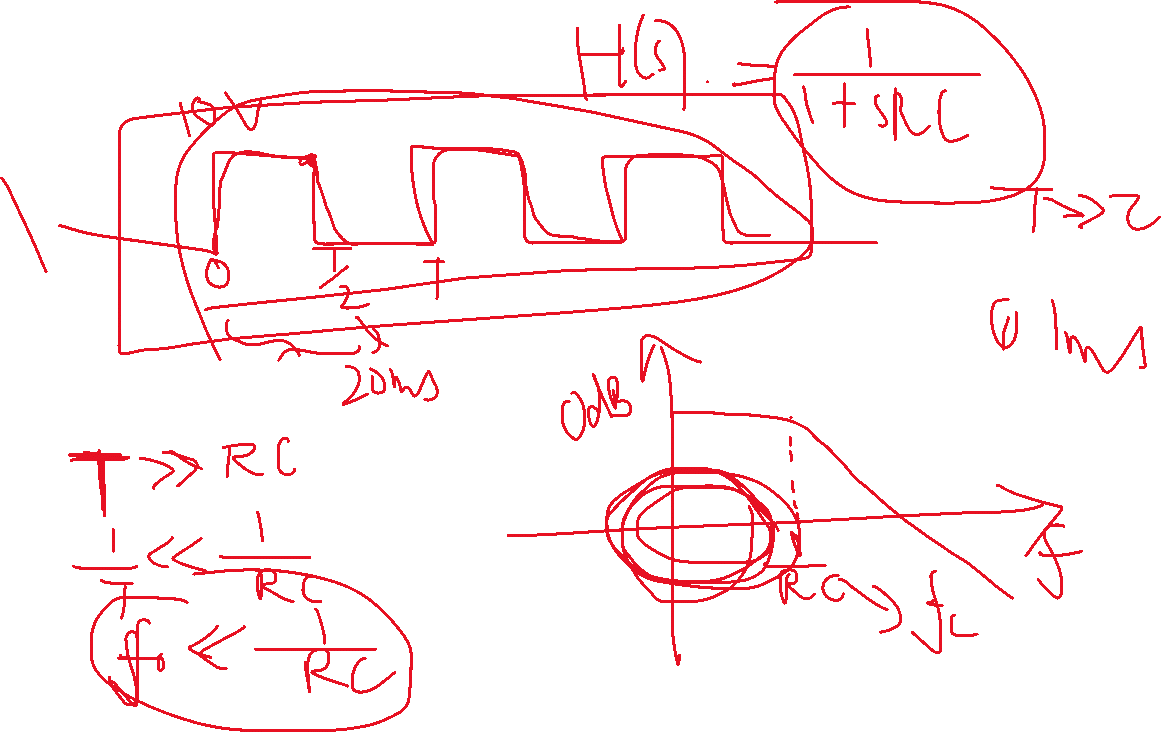 H(s) = 1/(1+sRC)
10V
T >> τ
0 T/2 T
20ms
1ms
0dB
T >> RC
1/T << 1/RC
f₀ << 1/RC
f
RC → fc